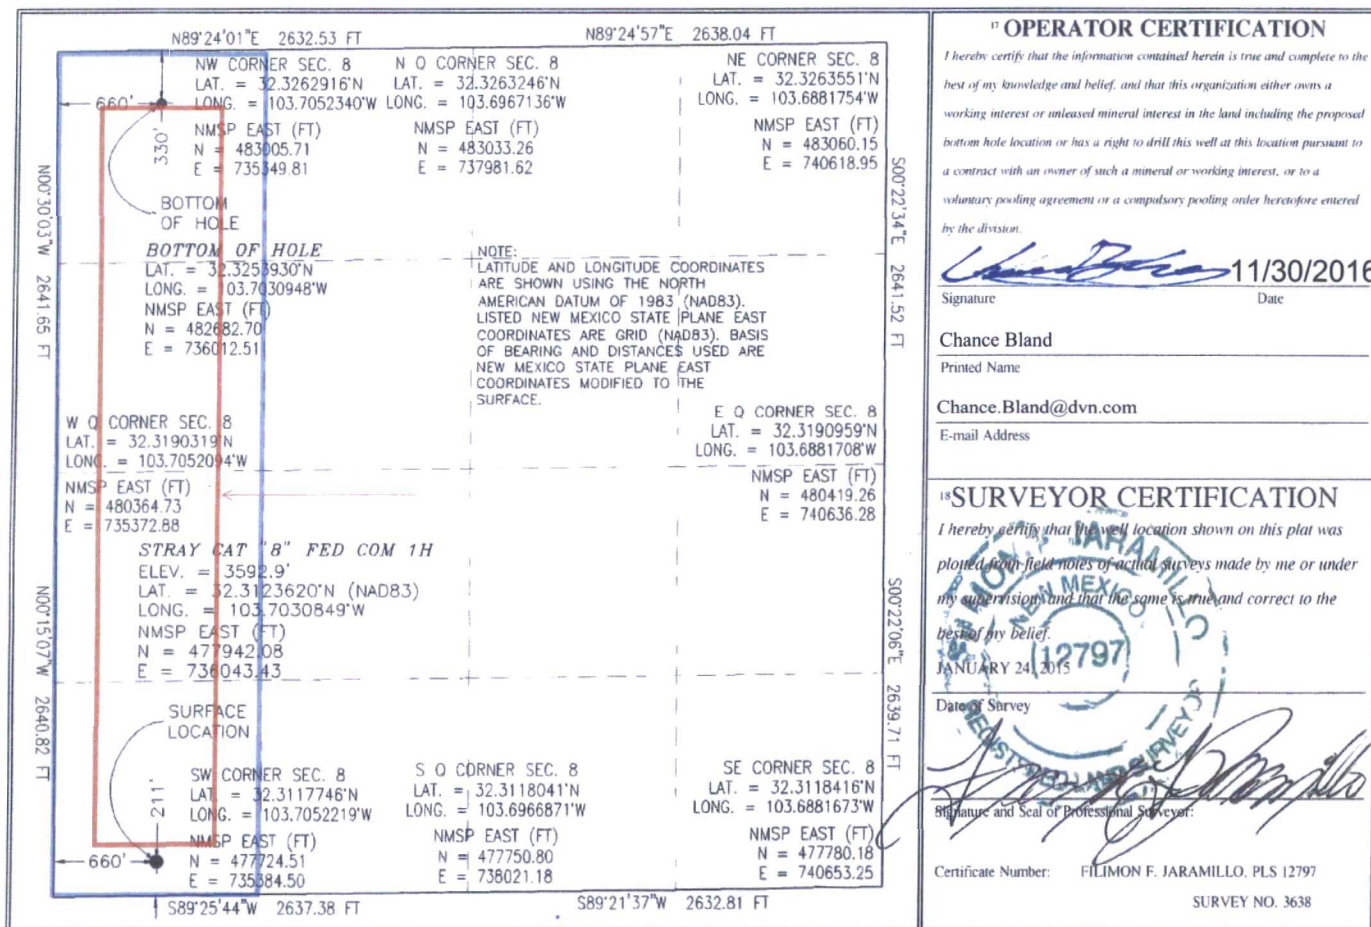 N89°24'01"E 2632.53 FT
N89°24'57"E 2638.04 FT
NW CORNER SEC. 8
LAT. = 32.3262916°N
LONG. = 103.7052340°W
NMSP EAST (FT)
N = 483005.71
E = 735349.81
N Q CORNER SEC. 8
LAT. = 32.3263246°N
LONG. = 103.6967136°W
NMSP EAST (FT)
N = 483033.26
E = 737981.62
NE CORNER SEC. 8
LAT. = 32.3263551°N
LONG. = 103.6881754°W
NMSP EAST (FT)
N = 483060.15
E = 740618.95
660'
330'
BOTTOM
OF HOLE
N00°30'03"W 2641.65 FT
S00°22'34"E 2641.52 FT
BOTTOM OF HOLE
LAT. = 32.3253930°N
LONG. = 103.7030948°W
NMSP EAST (FT)
N = 482682.70
E = 736012.51
NOTE:
LATITUDE AND LONGITUDE COORDINATES
ARE SHOWN USING THE NORTH
AMERICAN DATUM OF 1983 (NAD83).
LISTED NEW MEXICO STATE PLANE EAST
COORDINATES ARE GRID (NAD83). BASIS
OF BEARING AND DISTANCES USED ARE
NEW MEXICO STATE PLANE EAST
COORDINATES MODIFIED TO THE
SURFACE.
W Q CORNER SEC. 8
LAT. = 32.3190319°N
LONG. = 103.7052094°W
NMSP EAST (FT)
N = 480364.73
E = 735372.88
E Q CORNER SEC. 8
LAT. = 32.3190959°N
LONG. = 103.6881708°W
NMSP EAST (FT)
N = 480419.26
E = 740636.28
STRAY CAT "8" FED COM 1H
ELEV. = 3592.9'
LAT. = 32.3123620°N (NAD83)
LONG. = 103.7030849°W
NMSP EAST (FT)
N = 477942.08
E = 736043.43
N00°15'07"W 2640.82 FT
S00°22'06"E 2639.71 FT
SURFACE
LOCATION
211'
660'
SW CORNER SEC. 8
LAT. = 32.3117746°N
LONG. = 103.7052219°W
NMSP EAST (FT)
N = 477724.51
E = 735384.50
S Q CORNER SEC. 8
LAT. = 32.3118041°N
LONG. = 103.6966871°W
NMSP EAST (FT)
N = 477750.80
E = 738021.18
SE CORNER SEC. 8
LAT. = 32.3118416°N
LONG. = 103.6881673°W
NMSP EAST (FT)
N = 477780.18
E = 740653.25
S89°25'44"W 2637.38 FT
S89°21'37"W 2632.81 FT
17 OPERATOR CERTIFICATION
I hereby certify that the information contained herein is true and complete to the
best of my knowledge and belief, and that this organization either owns a
working interest or unleased mineral interest in the land including the proposed
bottom hole location or has a right to drill this well at this location pursuant to
a contract with an owner of such a mineral or working interest, or to a
voluntary pooling agreement or a compulsory pooling order heretofore entered
by the division.
11/30/2016
Signature Date
Chance Bland
Printed Name
Chance.Bland@dvn.com
E-mail Address
18 SURVEYOR CERTIFICATION
I hereby certify that the well location shown on this plat was
plotted from field notes of actual surveys made by me or under
my supervision, and that the same is true and correct to the
best of my belief.
JANUARY 24, 2015
Date of Survey
FILIMON F. JARAMILLO
NEW MEXICO
12797
REGISTERED LAND SURVEYOR
Signature and Seal of Professional Surveyor:
Certificate Number: FILIMON F. JARAMILLO, PLS 12797
SURVEY NO. 3638